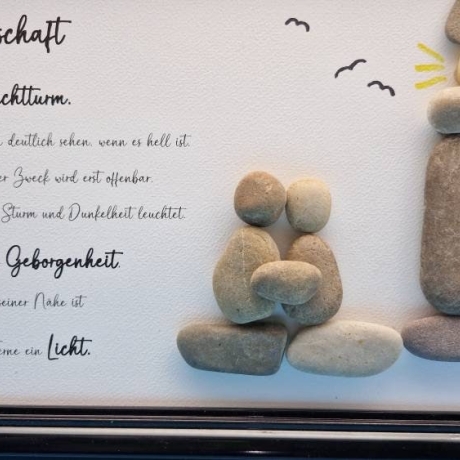 schaft
chtturm.
deutlich sehen, wenn es hell ist.
er Zweck wird erst offenbar.
Sturm und Dunkelheit leuchtet.
Geborgenheit.
seiner Nähe ist
erne ein Licht.